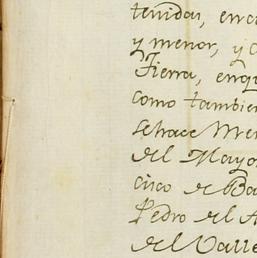 tenidas, en
y menor, y
Tierra, enq
como tambien
se hace Me
del Mayo
cisco de Ba
Pedro del A
del Valle